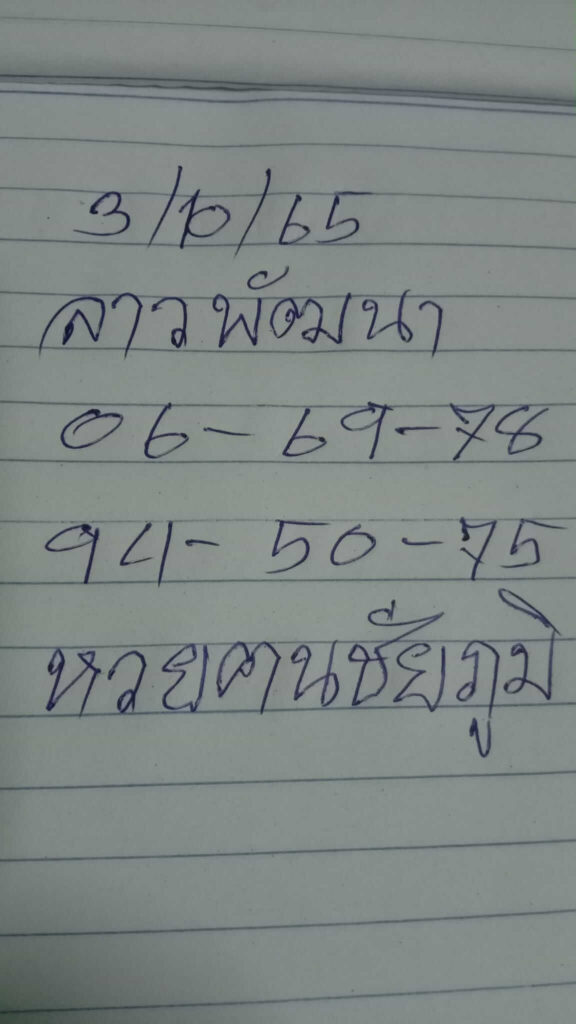 3/10/65
ลาวพัฒนา
06-69-78
94-50-75
หวยคนชัยภูมิ